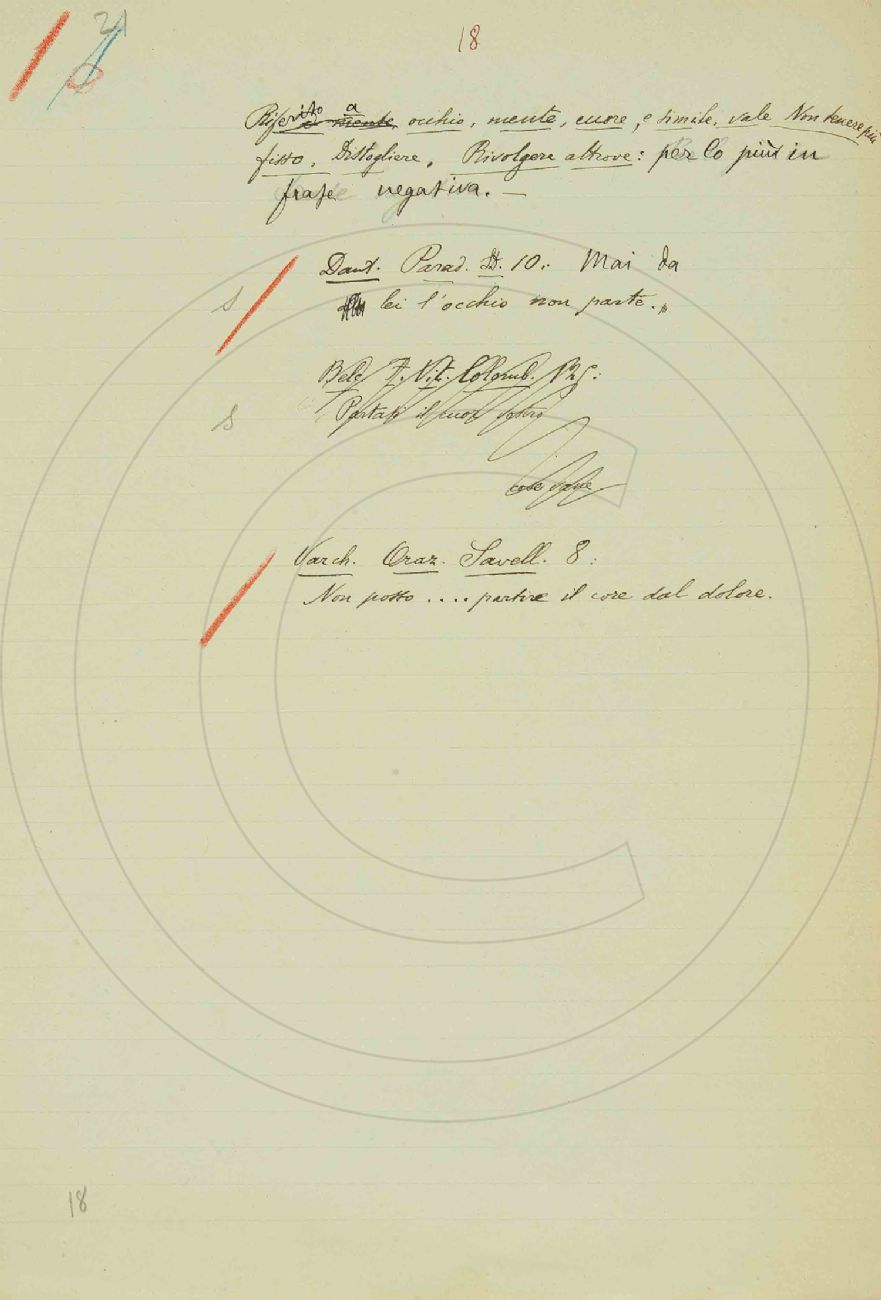 21
18
Riferito a occhio, mente, cuore, e simile, vale Non tenere più
fisso, Distogliere, Rivolgere altrove: per lo più in
frase negativa. —
Dant. Parad. 10: Mai da
lei l'occhio non parte.„
S
Belc. F. Vit. Colomb. 125:
S
Partasi il cuor vostro
cose vane.
Varch. Oraz. Savell. 8:
Non posso .... partire il core dal dolore.
18